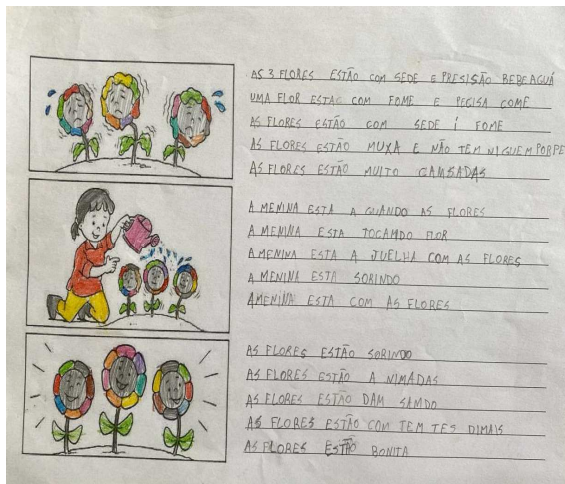 AS 3 FLORES ESTÃO COM SEDE E PRESISÃO BEBEAGUÁ
UMA FLOR ESTAC COM FOME E PECISA COMÊ
AS FLORES ESTÃO COM SEDE Í FOME
AS FLORES ESTÃO MUXA E NÃO TEM NIGUEM PORPE
AS FLORES ESTÃO MUITO CAMSADAS
A MENINA ESTA A GUANDO AS FLORES
A MENINA ESTA TOCAMDO FLOR
A MENINA ESTA A JUELHA COM AS FLORES
A MENINA ESTA SORINDO
AMENINA ESTA COM AS FLORES
AS FLORES ESTÃO SORINDO
AS FLORES ESTÃO A NIMADAS
AS FLORES ESTÃO DAM SAMDO
AS FLORES ESTÃO COM TEM TES DIMAIS
AS FLORES ESTÃO BONITA